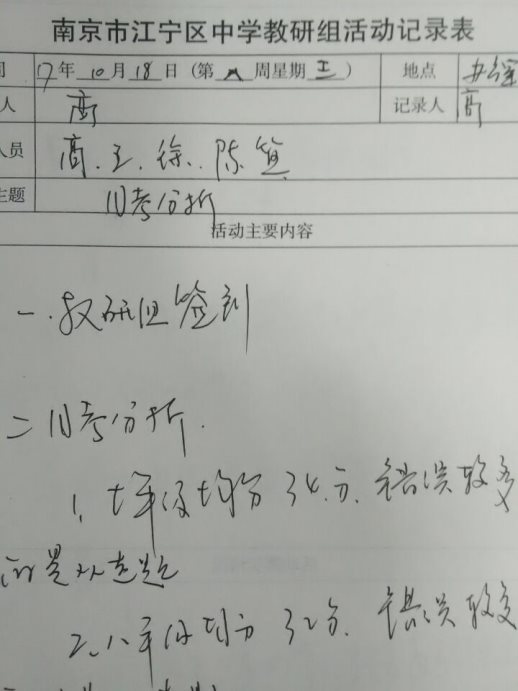 南京市江宁区中学教研组活动记录表
间 17年10月18日（第八周星期三） 地点 办公室
人 高 记录人 高
人员 高、王、徐、陈、笪
主题 月考分析
活动主要内容
一、教研组签到
二、月考分析.
1、七年级均分34分、错误较多
的是双选题
2、八年级均分32分、错误较多